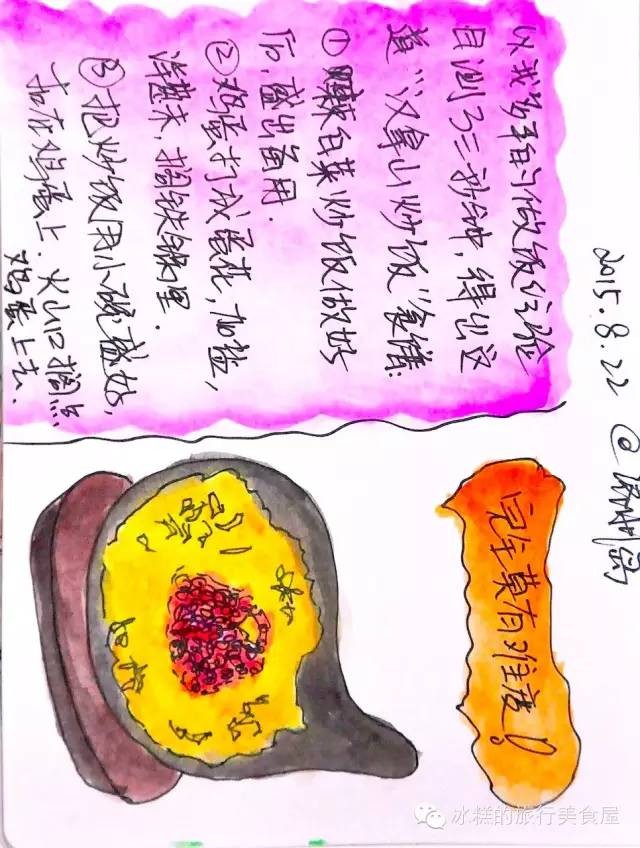 2015.8.22 @
以我多年的做饭经验
目测了三秒钟，得出这
道“汉拿山炒饭”食谱.
①辣白菜炒饭做好
后，盛出备用.
②鸡蛋打成蛋花，加盐，
洋葱末，搁铁锅里.
③把炒饭用小碗盛好，
扣在鸡蛋上.火山口搁点
鸡蛋上去.
完全莫有难度！
冰糕的旅行美食屋